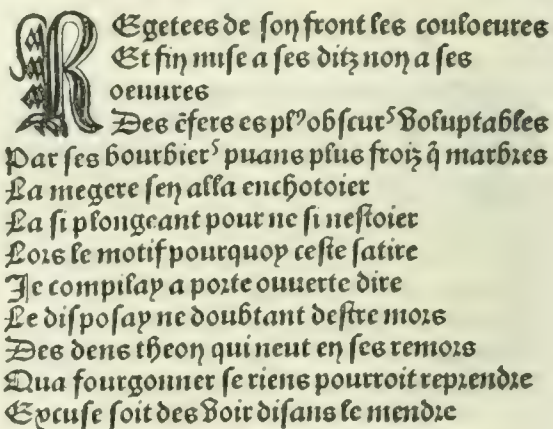 REgetees de son front les couloeures
Et fin mise a ses ditz non a ses
oeuures
Des c̃fers es plꝰ obscurˢ voluptables
Par ses bourbierˢ puans plus froiz q̃ marbres
La megere sen alla enchotoier
La si plongeant pour ne si nestoier
Lors le motif pourquoy ceste satire
Je compilay a porte ouuerte dire
Le disposay ne doubtant destre mors
Des dens theon qui neut en ses remors
Qua fourgonner se riens pourroit reprendre
Excuse soit des voir disans le mendre